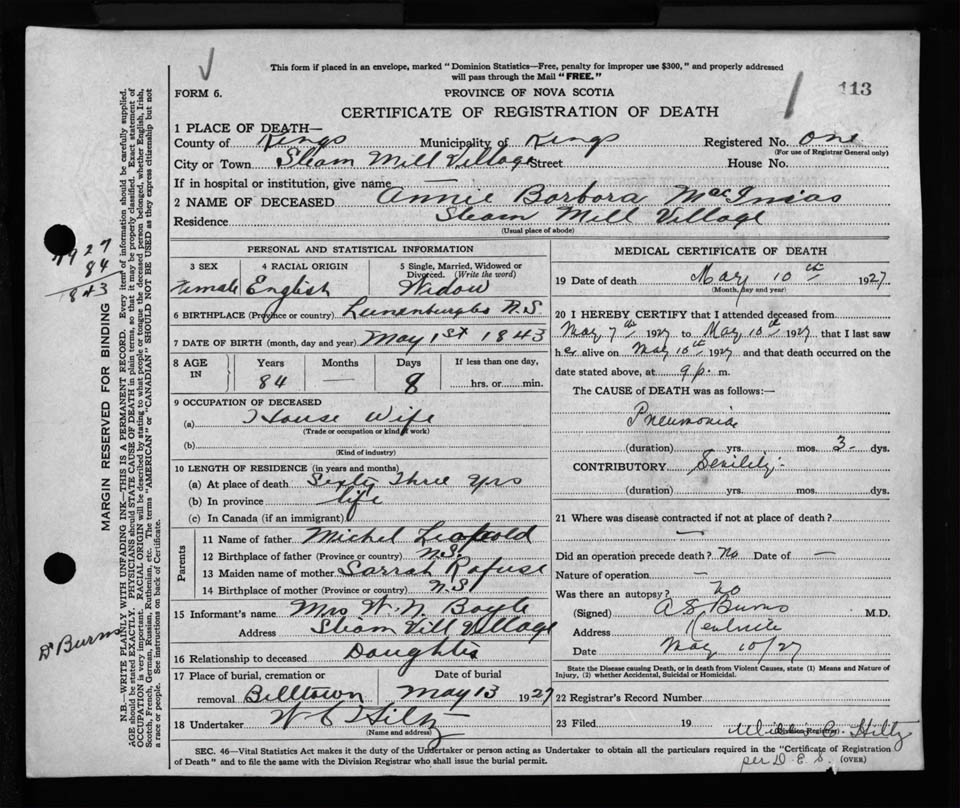 This form if placed in an envelope, marked "Dominion Statistics—Free, penalty for improper use $300," and properly addressed
will pass through the Mail "FREE."
FORM 6.
PROVINCE OF NOVA SCOTIA
113
CERTIFICATE OF REGISTRATION OF DEATH
1 PLACE OF DEATH—
County of Kings Municipality of Kings Registered No. one
(For use of Registrar General only)
City or Town Steam Mill Village Street House No.
If in hospital or institution, give name —
2 NAME OF DECEASED Annie Barbora
Residence Steam Mill Village
(Usual place of abode)
PERSONAL AND STATISTICAL INFORMATION
3 SEX 4 RACIAL ORIGIN 5 Single, Married, Widowed or Divorced. (Write the word)
Female English Widow
6 BIRTHPLACE (Province or country) N.S.
7 DATE OF BIRTH (month, day and year) May 1st 1843
8 AGE IN Years Months Days If less than one day,
84 — 8 hrs. or min.
9 OCCUPATION OF DECEASED
(a) House Wife
(Trade or occupation or kind of work)
(b)
(Kind of industry)
10 LENGTH OF RESIDENCE (in years and months)
(a) At place of death Sixty Three Yrs
(b) In province life
(c) In Canada (if an immigrant)
Parents
11 Name of father Michel
12 Birthplace of father (Province or country) N.S.
13 Maiden name of mother Sarrah Rafuse
14 Birthplace of mother (Province or country) N.S
15 Informant's name Mrs W. N. Boyle
Address Steam Mill Village
16 Relationship to deceased Daughter
17 Place of burial, cremation or removal Date of burial
Billtown May 13 1927
18 Undertaker W C Hiltz
(Name and address)
MEDICAL CERTIFICATE OF DEATH
19 Date of death May 10th 1927
(Month, day and year)
20 I HEREBY CERTIFY that I attended deceased from
May 7th 1927 to May 10th 1927 that I last saw
her alive on May 10th 1927 and that death occurred on the
date stated above, at 9 p. m.
The CAUSE of DEATH was as follows:—
Pneumonia
(duration) yrs. mos. 3 dys.
CONTRIBUTORY Senility
(duration) yrs. mos. dys.
21 Where was disease contracted if not at place of death?
—
Did an operation precede death? no Date of —
Nature of operation —
Was there an autopsy? no
(Signed) A S Burns M.D.
Address Kentville
Date May 10/27
State the Disease causing Death, or in death from Violent Causes, state (1) Means and Nature of
Injury, (2) whether Accidental, Suicidal or Homicidal.
22 Registrar's Record Number
23 Filed 19 Hiltz
(Division Registrar)
per D. E. S.
SEC. 46—Vital Statistics Act makes it the duty of the Undertaker or person acting as Undertaker to obtain all the particulars required in the "Certificate of Registration
of Death" and to file the same with the Division Registrar who shall issue the burial permit.
(OVER)
MARGIN RESERVED FOR BINDING
N.B.—WRITE PLAINLY WITH UNFADING INK—THIS IS A PERMANENT RECORD. Every item of information should be carefully supplied.
AGE should be stated EXACTLY. PHYSICIANS should STATE CAUSE OF DEATH in plain terms, so that it may be properly classified. Exact statement of
OCCUPATION is very important. RACIAL ORIGIN will be described by stating to what people or tongue the deceased person belonged, whether English, Irish,
Scotch, French, German, Russian, Ruthenian, etc. The terms "AMERICAN" or "CANADIAN" SHOULD NOT BE USED as they express citizenship but not
a race or people. See instructions on back of Certificate.
1927
84
1843
Dr Burns